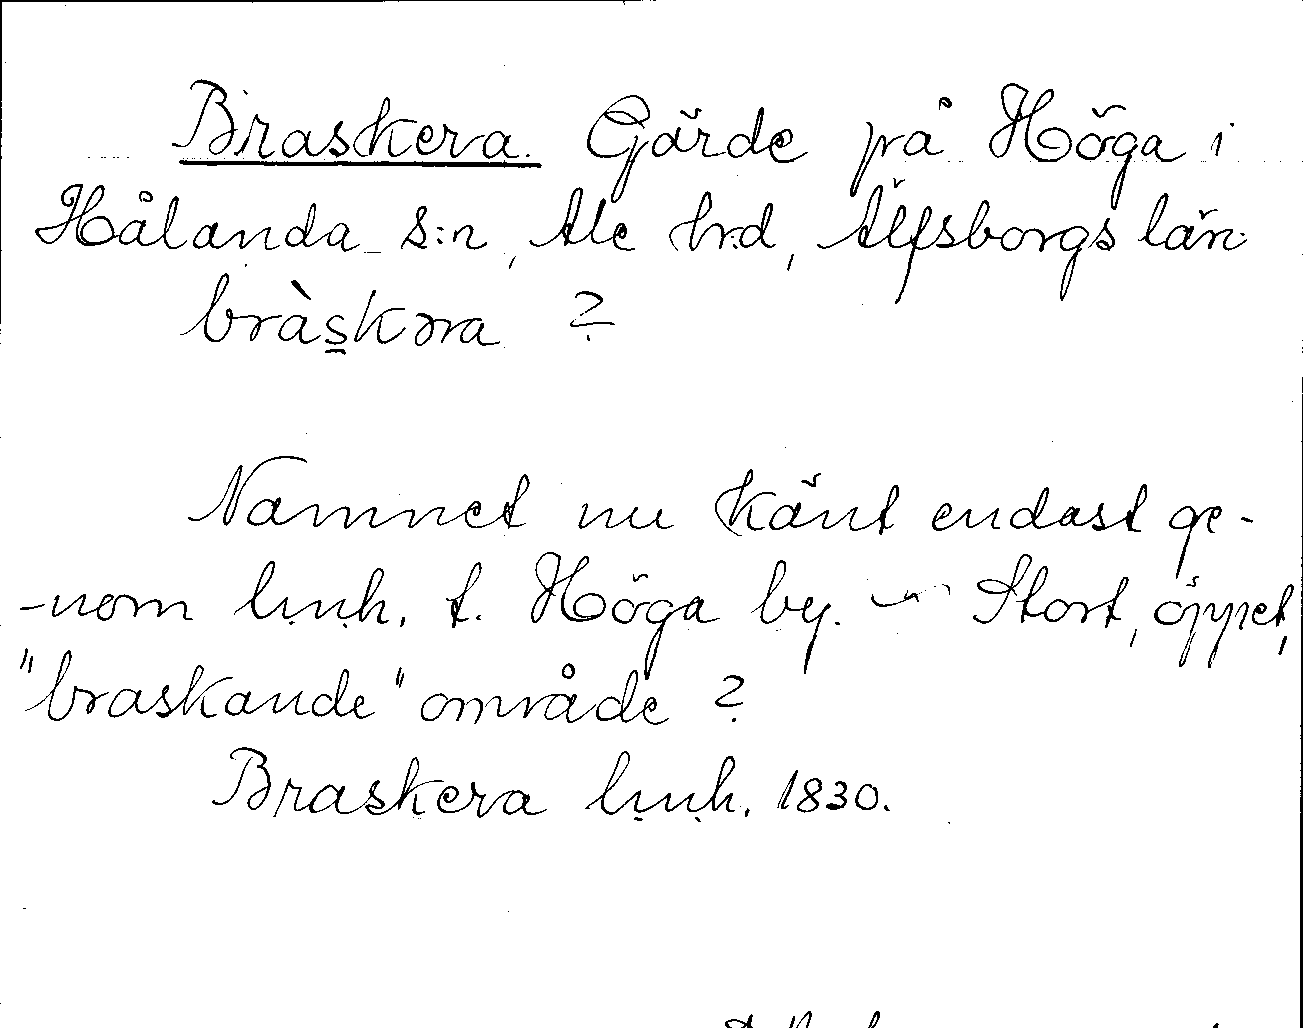 Braskera. Gärde på Höga i
Hålanda s:n, Ale hrd, Älfsborgs län.
bràs̲kəra ?
Namnet nu känt endast ge-
-nom l.u.h. t. Höga by. — Stort, öppet,
"braskande" område ?
Braskera l.u.h. 1830.